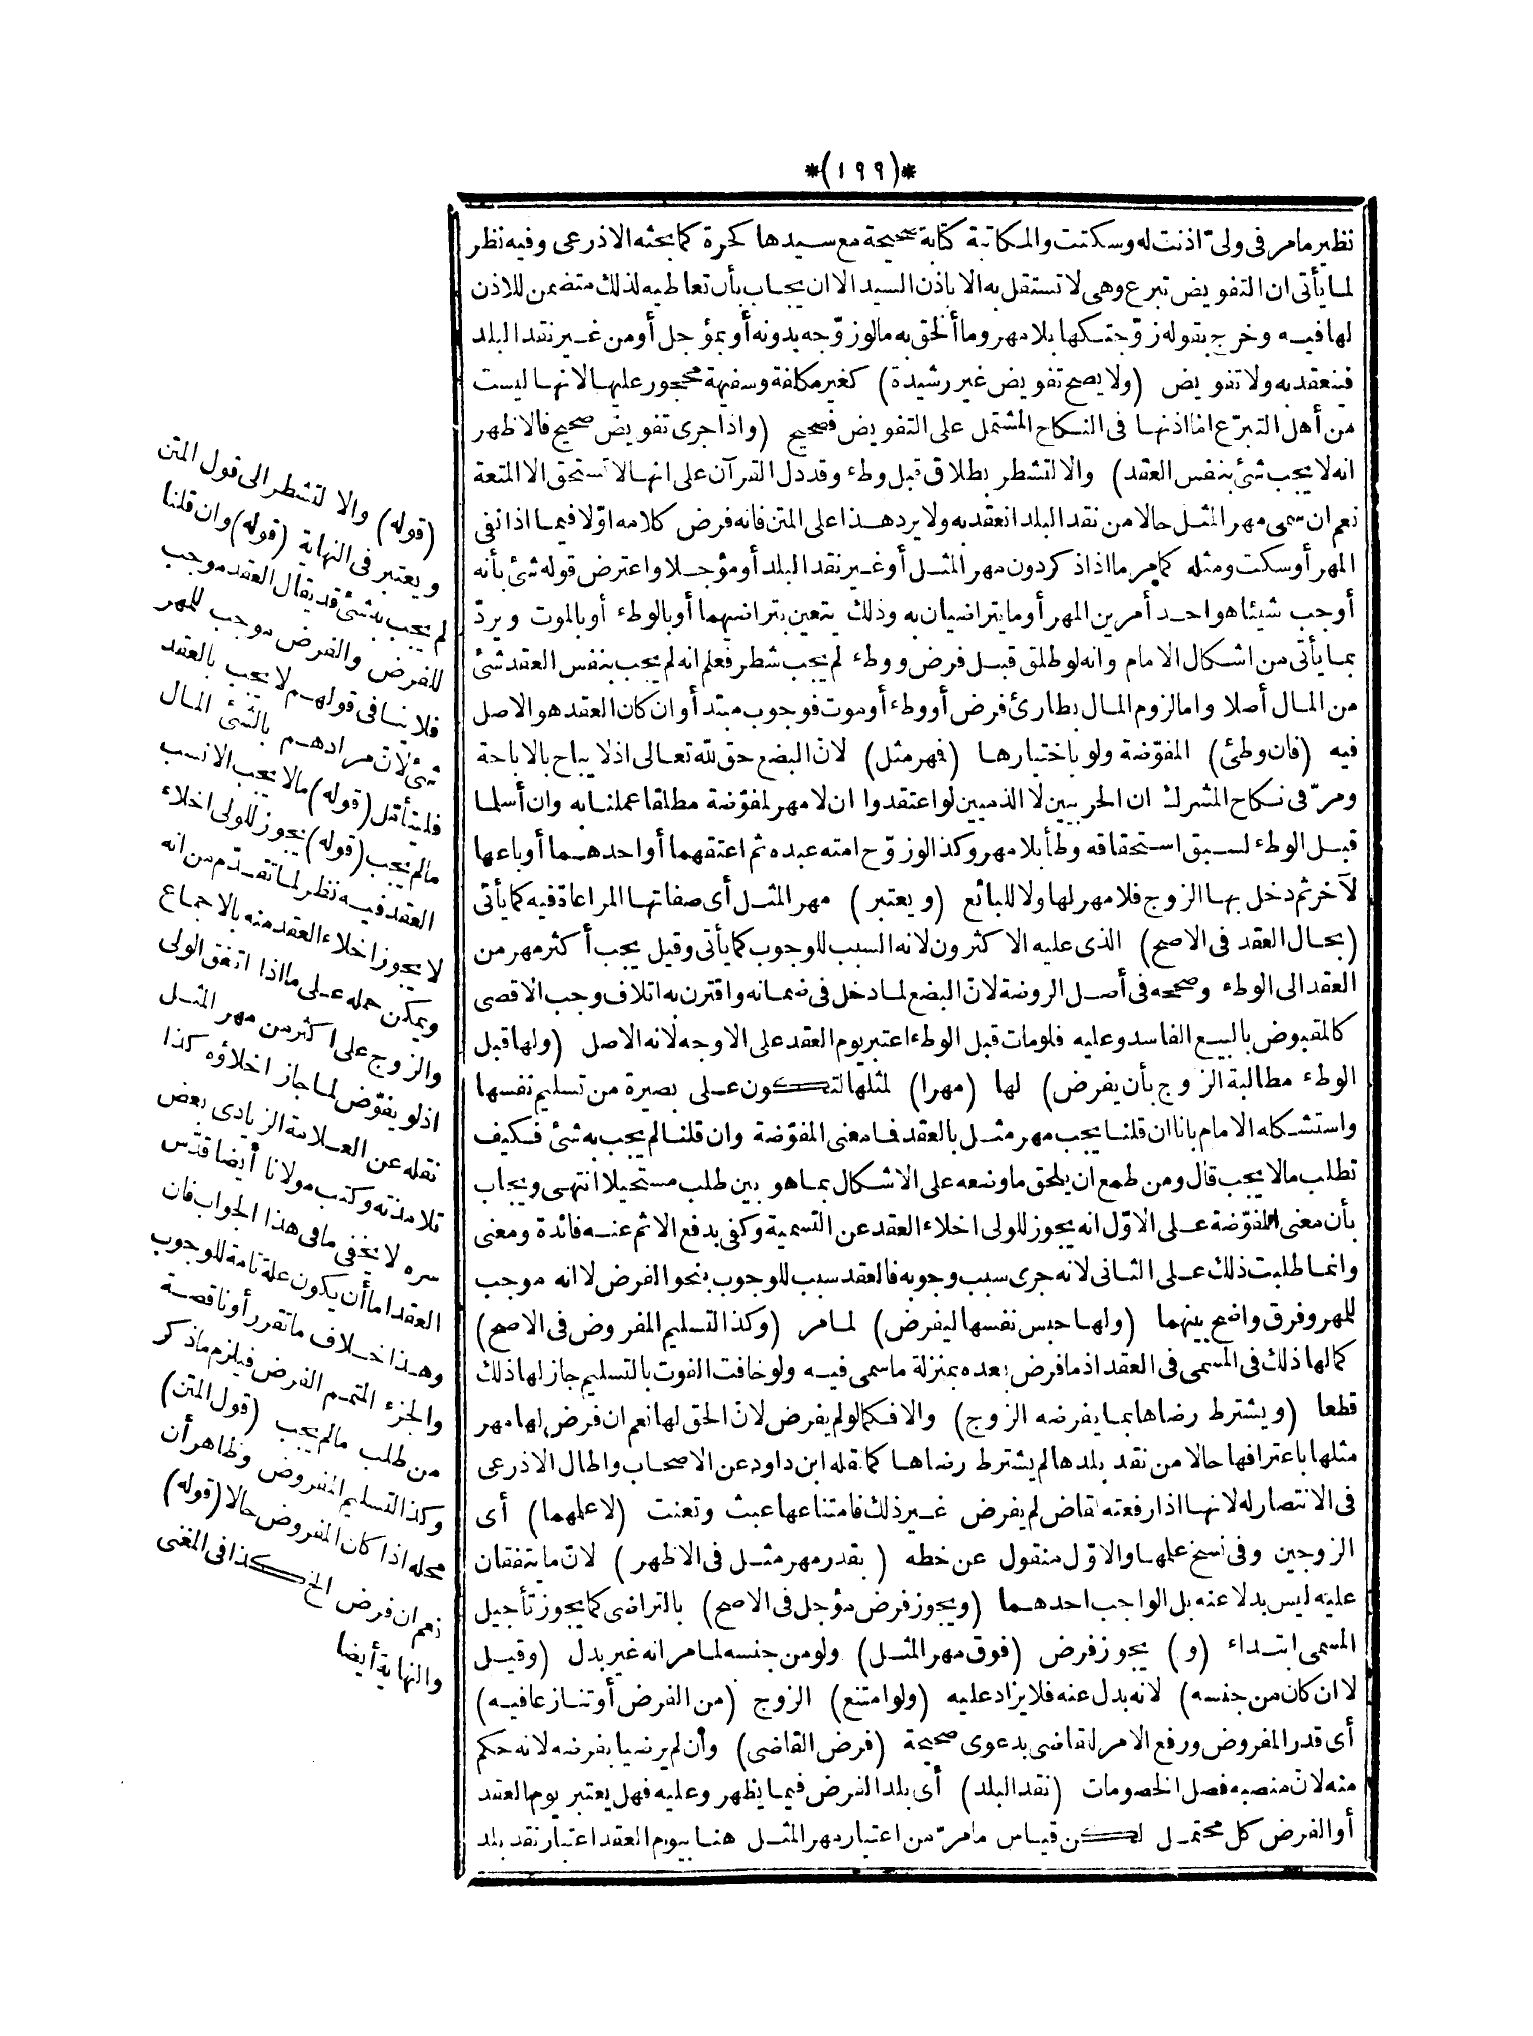 *(١٩٩)*
نظير مامر فى ولىّ اذنت له وسكتت والمكاتبة كتابة صحيحة مع سيدها كحرة كما بحثه الاذرعى وفيه نظر
لما يأتى ان التفويض تبرع وهى لا تستقل به الا باذن السيد الا ان يجاب بأن تعاطيه لذلك متضمن للاذن
لها فيه وخرج بقوله زوّجتكها بلا مهر وما ألحق به مالو زوّجه بدونه أو بمؤجل أو من غير نقد البلد
فينعقد به ولا تفويض (ولا يصح تفويض غير رشيدة) كغير مكلفة وسفيهة محجور عليها لانها ليست
من أهل التبرّع اما اذنها فى النكاح المشتمل على التفويض فصحيح (واذا جرى تفويض صحيح فالاظهر
انه لا يجب شئ بنفس العقد) والا لتشطر بطلاق قبل وطء وقد دل القرآن على انها لا تستحق الا المتعة
نعم ان سمى مهر المثل حالا من نقد البلد انعقد به ولا يرد هذا على المتن فانه فرض كلامه اوّلا فيما اذا نفى
المهر أو سكت ومثله كما مر ما اذا ذكر دون مهر المثل أو غير نقد البلد أو مؤجلا واعترض قوله شئ بأنه
أوجب شيئا هو احد أمرين المهر أو ما يتراضيان به وذلك يتعين بتراضيهما أو بالوطء أو بالموت ويردّ
بما يأتى من اشكال الامام وانه لو طلق قبل فرض ووطء لم يجب شطر فعلم انه لم يجب بنفس العقد شئ
من المال أصلا واما لزوم المال بطارئ فرض أو وطء أو موت فوجوب مبتدأ وان كان العقد هو الاصل
فيه (فان وطئ) المفوّضة ولو باختيارها (فمهر مثل) لانّ البضع حق لله تعالى اذلا يباح بالاباحة
ومرّ فى نكاح المشرك ان الحربيين لا الذميين لو اعتقدوا ان لا مهر لمفوّضة مطلقا عملنا به وان أسلما
قبل الوطء لسبق استحقاقه وطأ بلا مهر وكذا لو زوّج امته عبده ثم اعتقهما أو احدهما أو باعها
لآخر ثم دخل بها الزوج فلا مهر لها ولا للبائع (ويعتبر) مهر المثل أى صفاتها المراعاة فيه كما يأتى
(بحال العقد فى الاصح) الذى عليه الاكثرون لانه السبب للوجوب كما يأتى وقيل يجب أكثر مهر من
العقد الى الوطء وصححه فى أصل الروضة لانّ البضع لما دخل فى ضمانه واقترن به اتلاف وجب الاقصى
كالمقبوض بالبيع الفاسد وعليه فلو مات قبل الوطء اعتبر يوم العقد على الاوجه لانه الاصل (ولها قبل
الوطء مطالبة الزوج بأن يفرض) لها (مهرا) لمثلها لتكون على بصيرة من تسليم نفسها
واستشكله الامام بانا ان قلنا يجب مهر مثل بالعقد فما معنى المفوّضة وان قلنا لم يجب به شئ فكيف
تطلب مالا يجب قال ومن طمع ان يلحق ما وضعه على الاشكال بما هو بين طلب مستحيلا انتهى ويجاب
بأن معنى المفوّضة على الاوّل انه يجوز للولى اخلاء العقد عن التسمية وكفى بدفع الاثم عنه فائدة ومعنى
وانما طلبت ذلك على الثانى لانه جرى سبب وجوبه فالعقد سبب للوجوب بنحو الفرض لا انه موجب
للمهر وفرق واضح بينهما (ولها حبس نفسها ليفرض) لما مر (وكذا لتسليم المفروض فى الاصح)
كما لها ذلك فى المسمى فى العقد اذ ما فرض بعده بمنزلة ما سمى فيه ولو خافت الفوت بالتسليم جاز لها ذلك
قطعا (ويشترط رضاها بما يفرضه الزوج) والا فكما لو لم يفرض لانّ الحق لها نعم ان فرض لها مهر
مثلها باعترافها حالا من نقد بلدها لم يشترط رضاها كما نقله ابن داود عن الاصحاب واطال الاذرعى
فى الانتصار له لانها اذا رفعته لقاض لم يفرض غير ذلك فامتناعها عبث وتعنت (لا علمهما) أى
الزوجين وفى نسخ علمها والاوّل منقول عن خطه (بقدر مهر مثل فى الاظهر) لانّ ما يتفقان
عليه ليس بدلا عنه بل الواجب احدهما (ويجوز فرض مؤجل فى الاصح) بالتراضى كما يجوز تأجيل
المسمى ابتداء (و) يجوز فرض (فوق مهر المثل) ولو من جنسه لما مر انه غير بدل (وقيل
لا ان كان من جنسه) لانه بدل عنه فلا يزاد عليه (ولو امتنع) الزوج (من الفرض أو تنازعا فيه)
أى قدر المفروض ورفع الامر لقاضى بدعوى صحيحة (فرض القاضى) وأن لم يرضيا بفرضه لانه حكم
منه لانّ منصبه فصل الخصومات (نقد البلد) أى بلد الفرض فيما يظهر وعليه فهل يعتبر يوم العقد
أو الفرض كل محتمل لكن قياس ما مرّ من اعتبار مهر المثل هنا بيوم العقد اعتبار نقد بلد
(قوله) والا لتشطر الى قول المتن
ويعتبر فى النهاية (قوله) وان قلنا
لم يجب به شئ قد يقال العقد موجب
للفرض والفرض موجب للمهر
فلا ينافى قولهم لا يجب بالعقد
شئ لانّ مرادهم بالشئ المال
فليتأمّل (قوله) مالا يجب الانسب
مالم يجب (قوله) يجوز للولى اخلاء
العقد فيه نظر لما تقدّم من انه
لا يجوز اخلاء العقد منه بالاجماع
ويمكن حمله على ما اذا اتفق الولى
والزوج على اكثر من مهر المثل
اذ لو يفوّض لما جاز اخلاؤه كذا
نقله عن العلامة الزيادى بعض
تلامذته وكتب مولانا أيضا قدّس
سره لا يخفى ما فى هذا الجواب فان
العقد اما أن يكون علة تامة للوجوب
وهذا خلاف ما تقرر أو ناقصة
والجزء المتمم الفرض فيلزم ماذكر
من طلب مالم يجب (قول المتن)
وكذا لتسليم المفروض وظاهر أن
محله اذا كان المفروض حالا (قوله)
نعم ان فرض الخ كذا فى المغنى
والنهاية أيضا